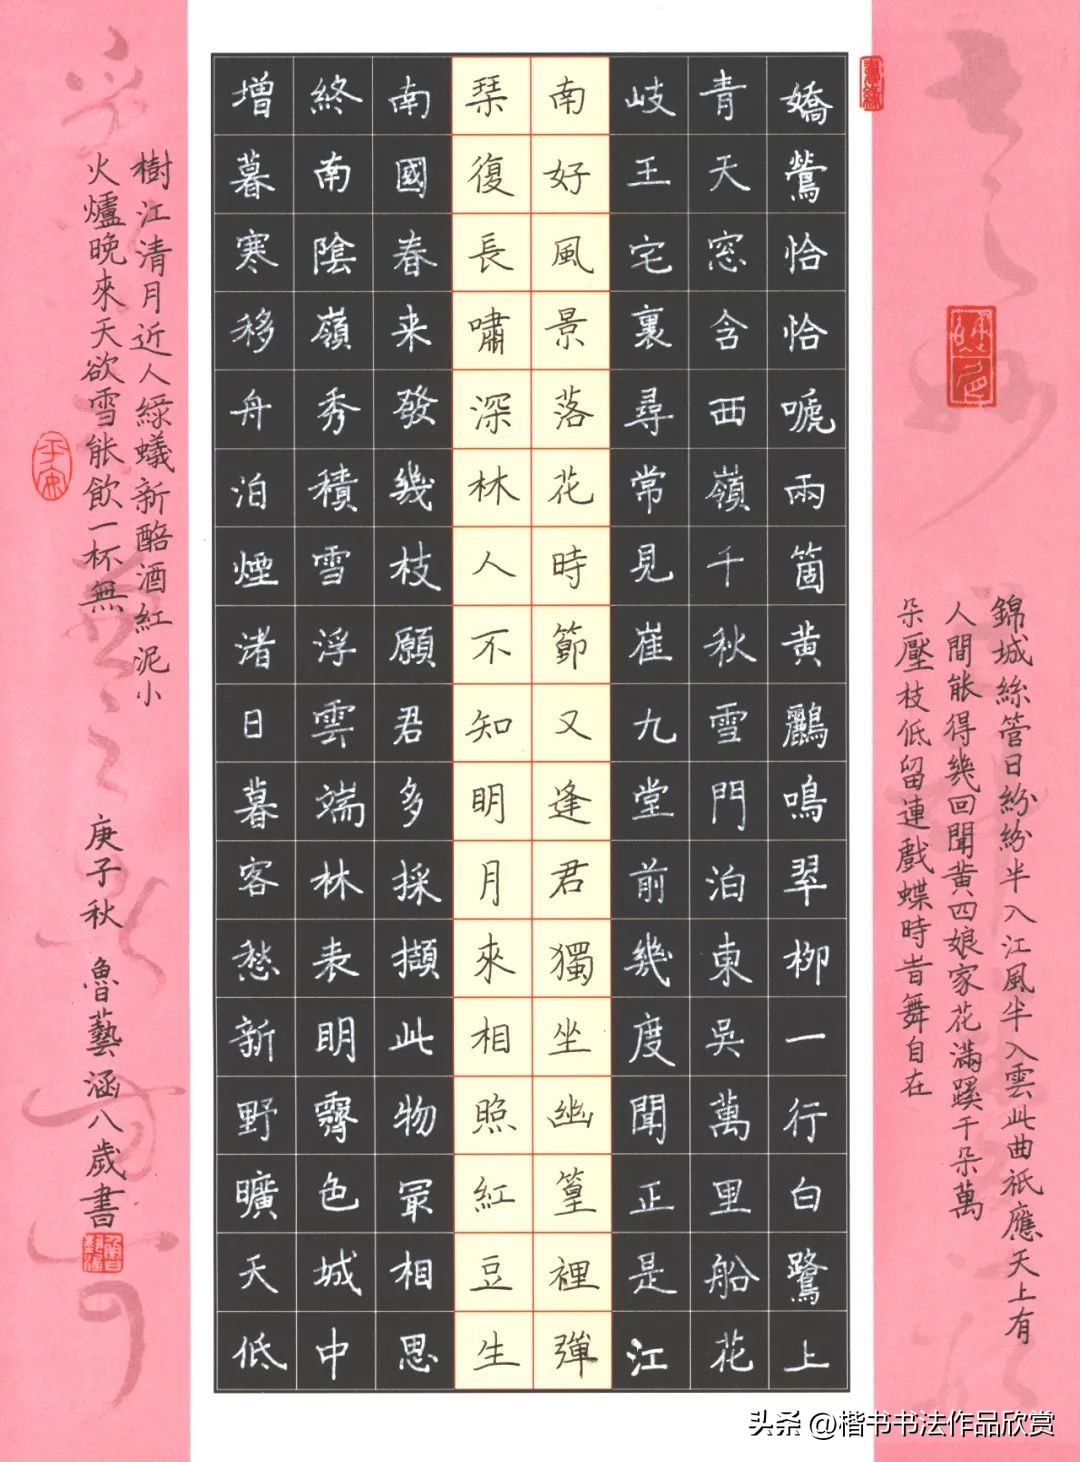 錦城絲管日紛紛半入江風半入雲此曲祇應天上有
人間能得幾回聞黄四娘家花滿蹊千朵萬
朵壓枝低留連戲蝶時旹舞自在
嬌鶯恰恰嗁兩箇黄鸝鳴翠柳一行白鷺上
青天窓含西嶺千秋雪門泊東吳萬里船花
岐王宅裏尋常見崔九堂前幾度聞正是江
南好風景落花時節又逢君獨坐幽篁裡彈
琴復長嘯深林人不知明月來相照紅豆生
南國春来發幾枝願君多採擷此物冣相思
終南陰嶺秀積雪浮雲端林表明霽色城中
增暮寒移舟泊煙渚日暮客愁新野曠天低
樹江清月近人綠蟻新醅酒紅泥小
火爐晚來天欲雪能飲一杯無
庚子秋 魯藝涵八歲書
平安
头条 @楷书书法作品欣赏